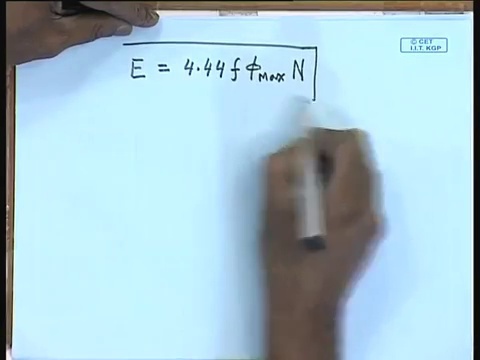 © CET
I.I.T. KGP
E = 4.44 f ϕMax N